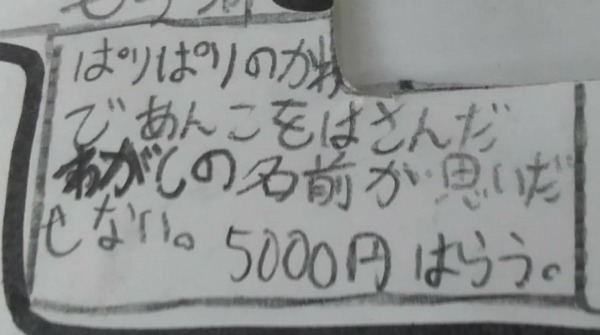 ぱりぱりのかわ
であんこをはさんだ
わがしの名前が思いだ
せない。5000円はらう。